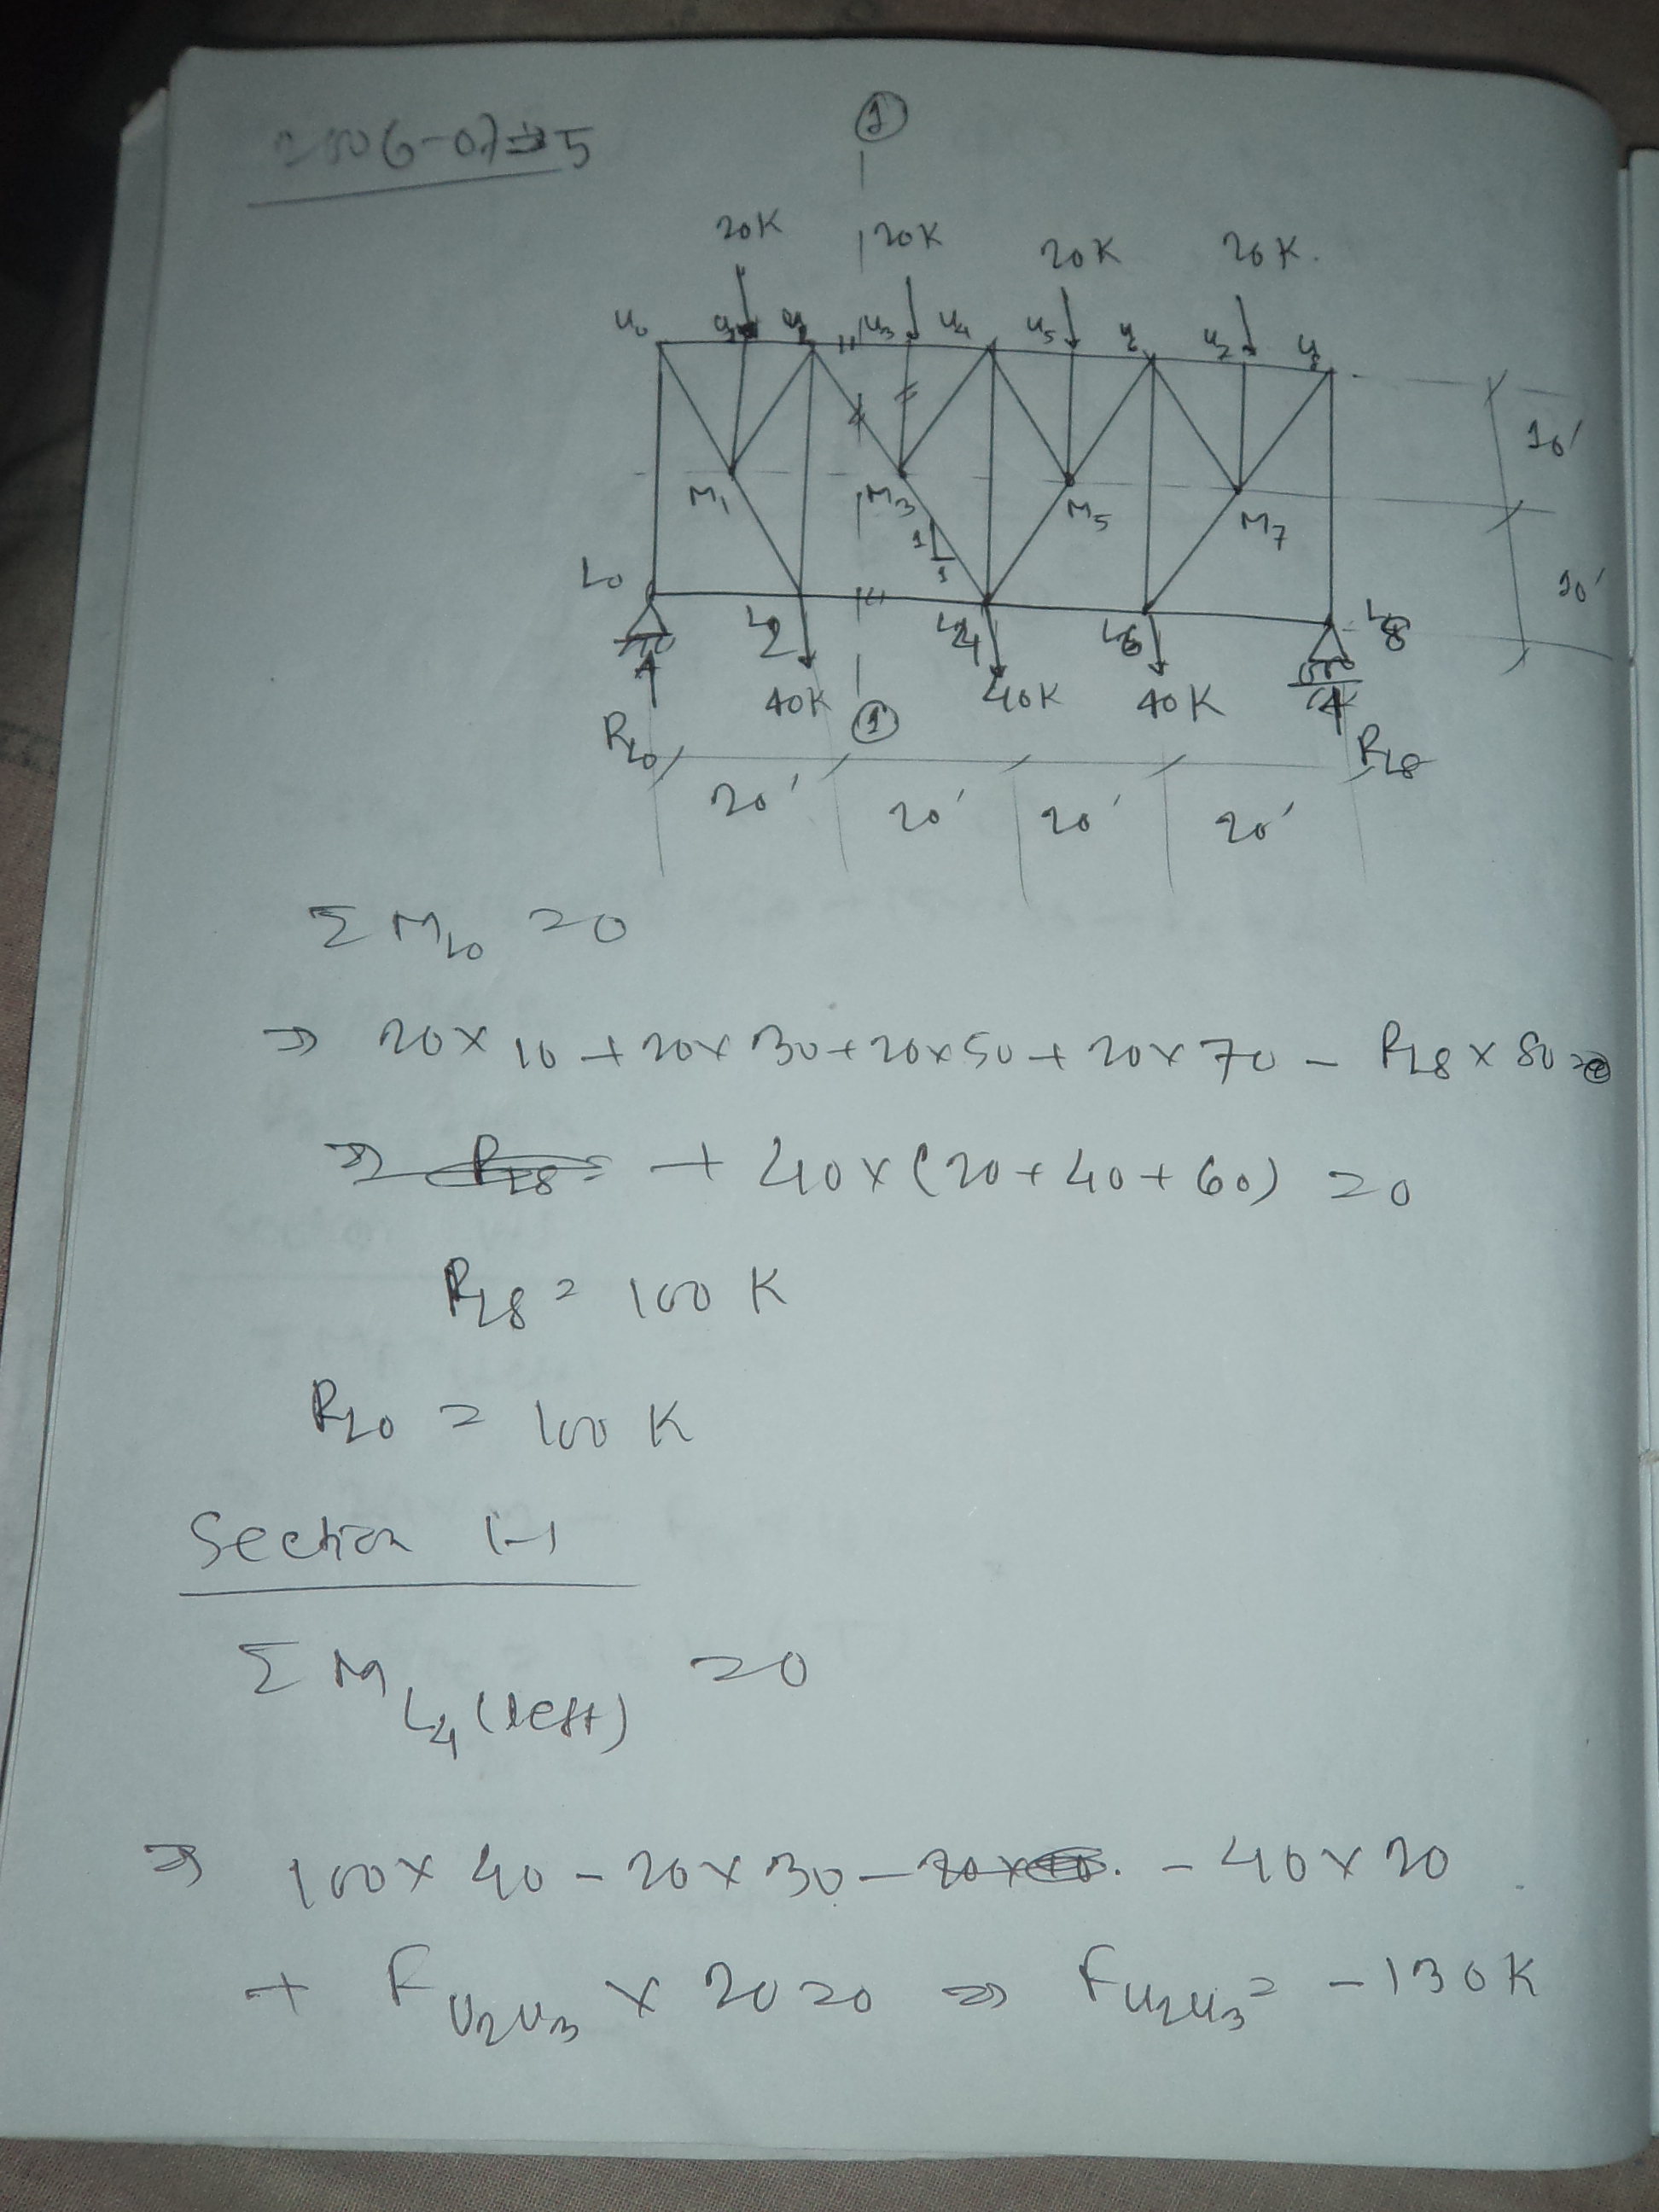 2006-07 ⇒ 5
①
20K 20K 20K 20K.
U₀ U₂ U₃ U₄ U₅ U₈
10'
M₁ M₃ M₅ M₇
1
1
10'
L₀ L₂ L₄ L₆ L₈
40K ① 40K 40K
R_L0 R_L8
20' 20' 20' 20'
Σ M_L0 = 0
⇒ 20 × 10 + 20 × 30 + 20 × 50 + 20 × 70 - R_L8 × 80
+ 40 × (20 + 40 + 60) = 0
R_L8 = 100 K
R_L0 = 100 K
Section 1-1
Σ M_L4 (left) = 0
⇒ 100 × 40 - 20 × 30 - 40 × 20
+ F_U2U3 × 20 = 0 ⇒ F_U2U3 = -130K